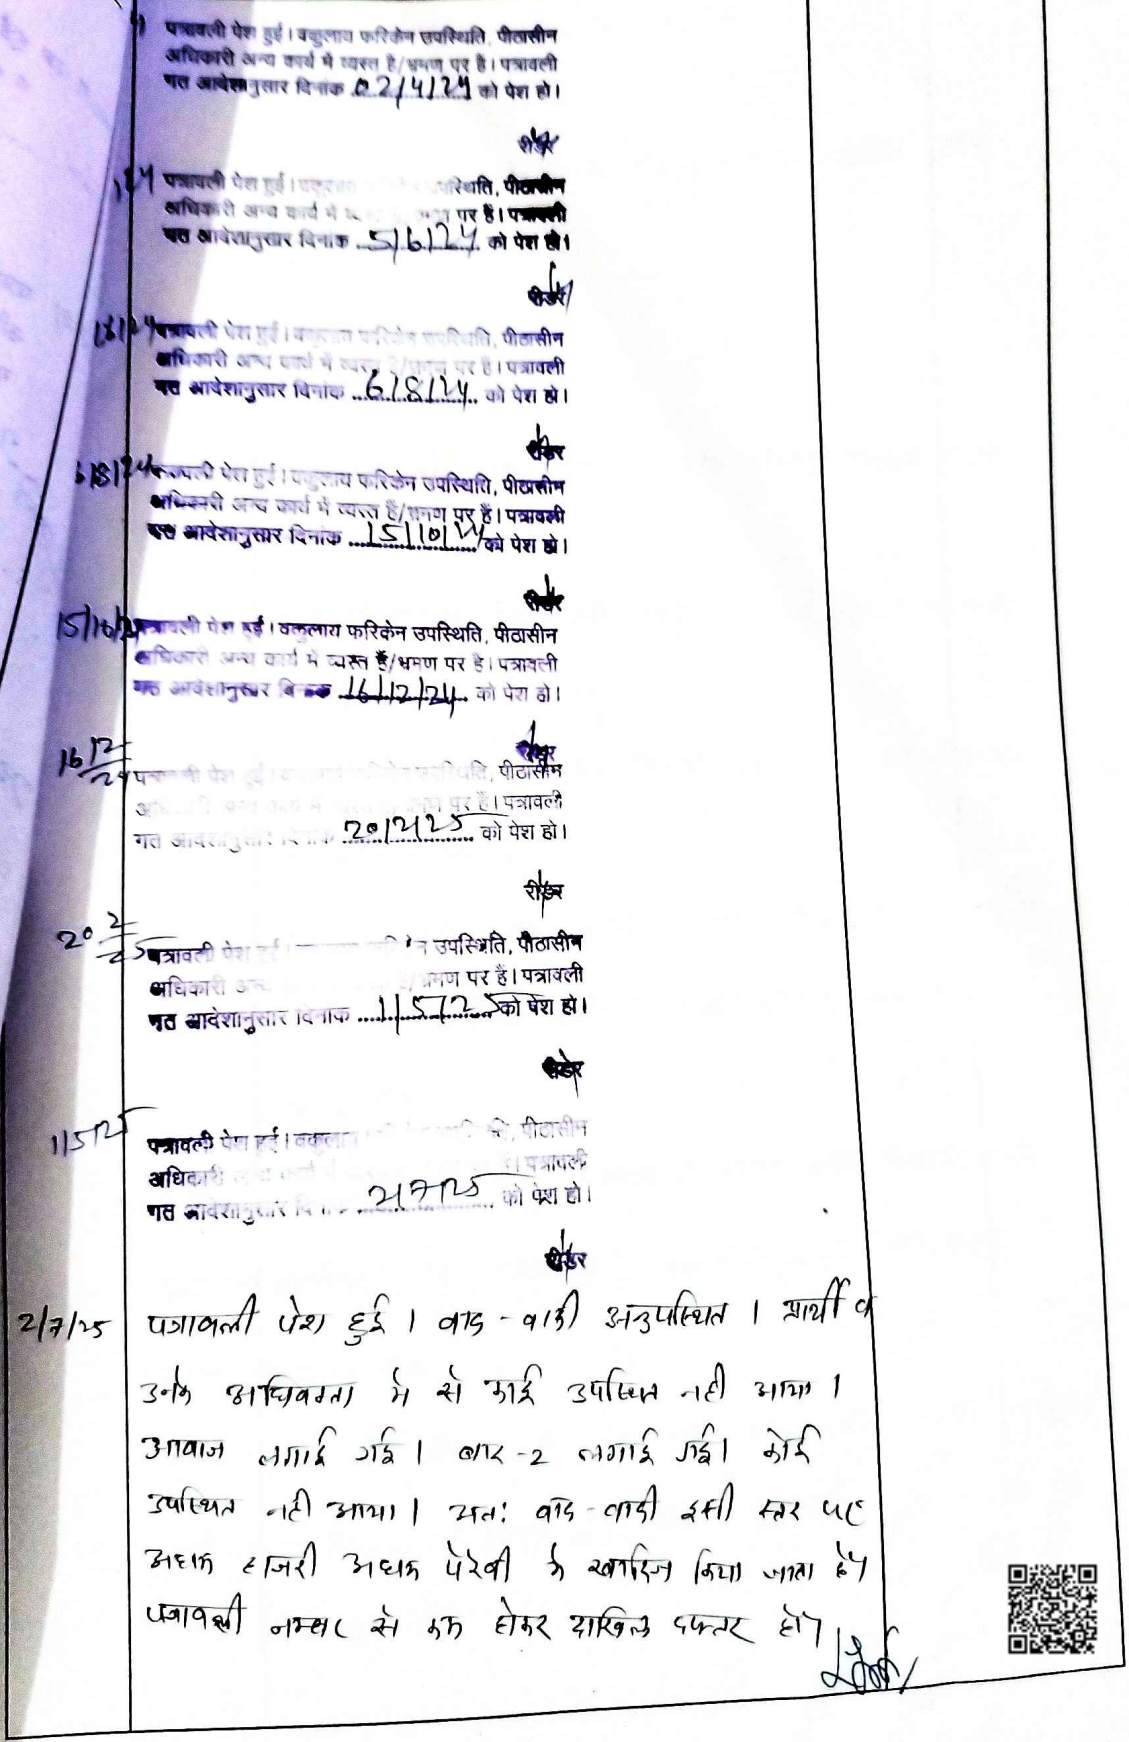 पत्रावली पेश हुई। वकुलाय फरिकेन उपस्थिति, पीठासीन
अधिकारी अन्य कार्य में व्यस्त है/भ्रमण पर है। पत्रावली
गत आदेशानुसार दिनांक 02/4/24 को पेश हो।
रीडर
पत्रावली पेश हुई। उपस्थिति, पीठासीन
अधिकारी अन्य कार्य में पर है। पत्रावली
गत आदेशानुसार दिनांक 5/6/24 को पेश हो।
रीडर
पत्रावली पेश हुई। वकुलाय फरिकेन उपस्थिति, पीठासीन
अधिकारी अन्य कार्य में व्यस्त है/भ्रमण पर है। पत्रावली
गत आदेशानुसार दिनांक 6/8/24 को पेश हो।
रीडर
6/8/24 पत्रावली पेश हुई। वकुलाय फरिकेन उपस्थिति, पीठासीन
अधिकारी अन्य कार्य में व्यस्त है/भ्रमण पर है। पत्रावली
गत आदेशानुसार दिनांक 15/10/24 को पेश हो।
रीडर
15/10/24 पत्रावली पेश हुई। वकुलाय फरिकेन उपस्थिति, पीठासीन
अधिकारी अन्य कार्य में व्यस्त है/भ्रमण पर है। पत्रावली
गत आदेशानुसार दिनांक 16/12/24 को पेश हो।
रीडर
16 12/24 पत्रावली पेश हुई उपस्थिति, पीठासीन
अधिकारी अन्य कार्य में भ्रमण पर है। पत्रावली
गत आदेशानुसार दिनांक 20/2/25 को पेश हो।
रीडर
20 2/25 पत्रावली पेश हुई उपस्थिति, पीठासीन
अधिकारी अन्य भ्रमण पर है। पत्रावली
गत आदेशानुसार दिनांक 1/5/25 को पेश हो।
रीडर
1/5/25 पत्रावली पेश हुई। वकुलाय पीठासीन
अधिकारी पत्रावली
गत आदेशानुसार 2/7/25 को पेश हो।
रीडर
2/7/25 पत्रावली पेश हुई। वाद-वादी अनुपस्थित। प्रार्थी व
उनके अधिवक्ता मे से कोई उपस्थित नही आया।
आवाज लगाई गई। बार-2 लगाई गई। कोई
उपस्थित नही आया। अतः वाद-वादी इसी स्तर पर
अदम हाजरी अदम पैरवी के खारिज किया जाता है।
पत्रावली नम्बर से कम होकर दाखिल दफ्तर हो।